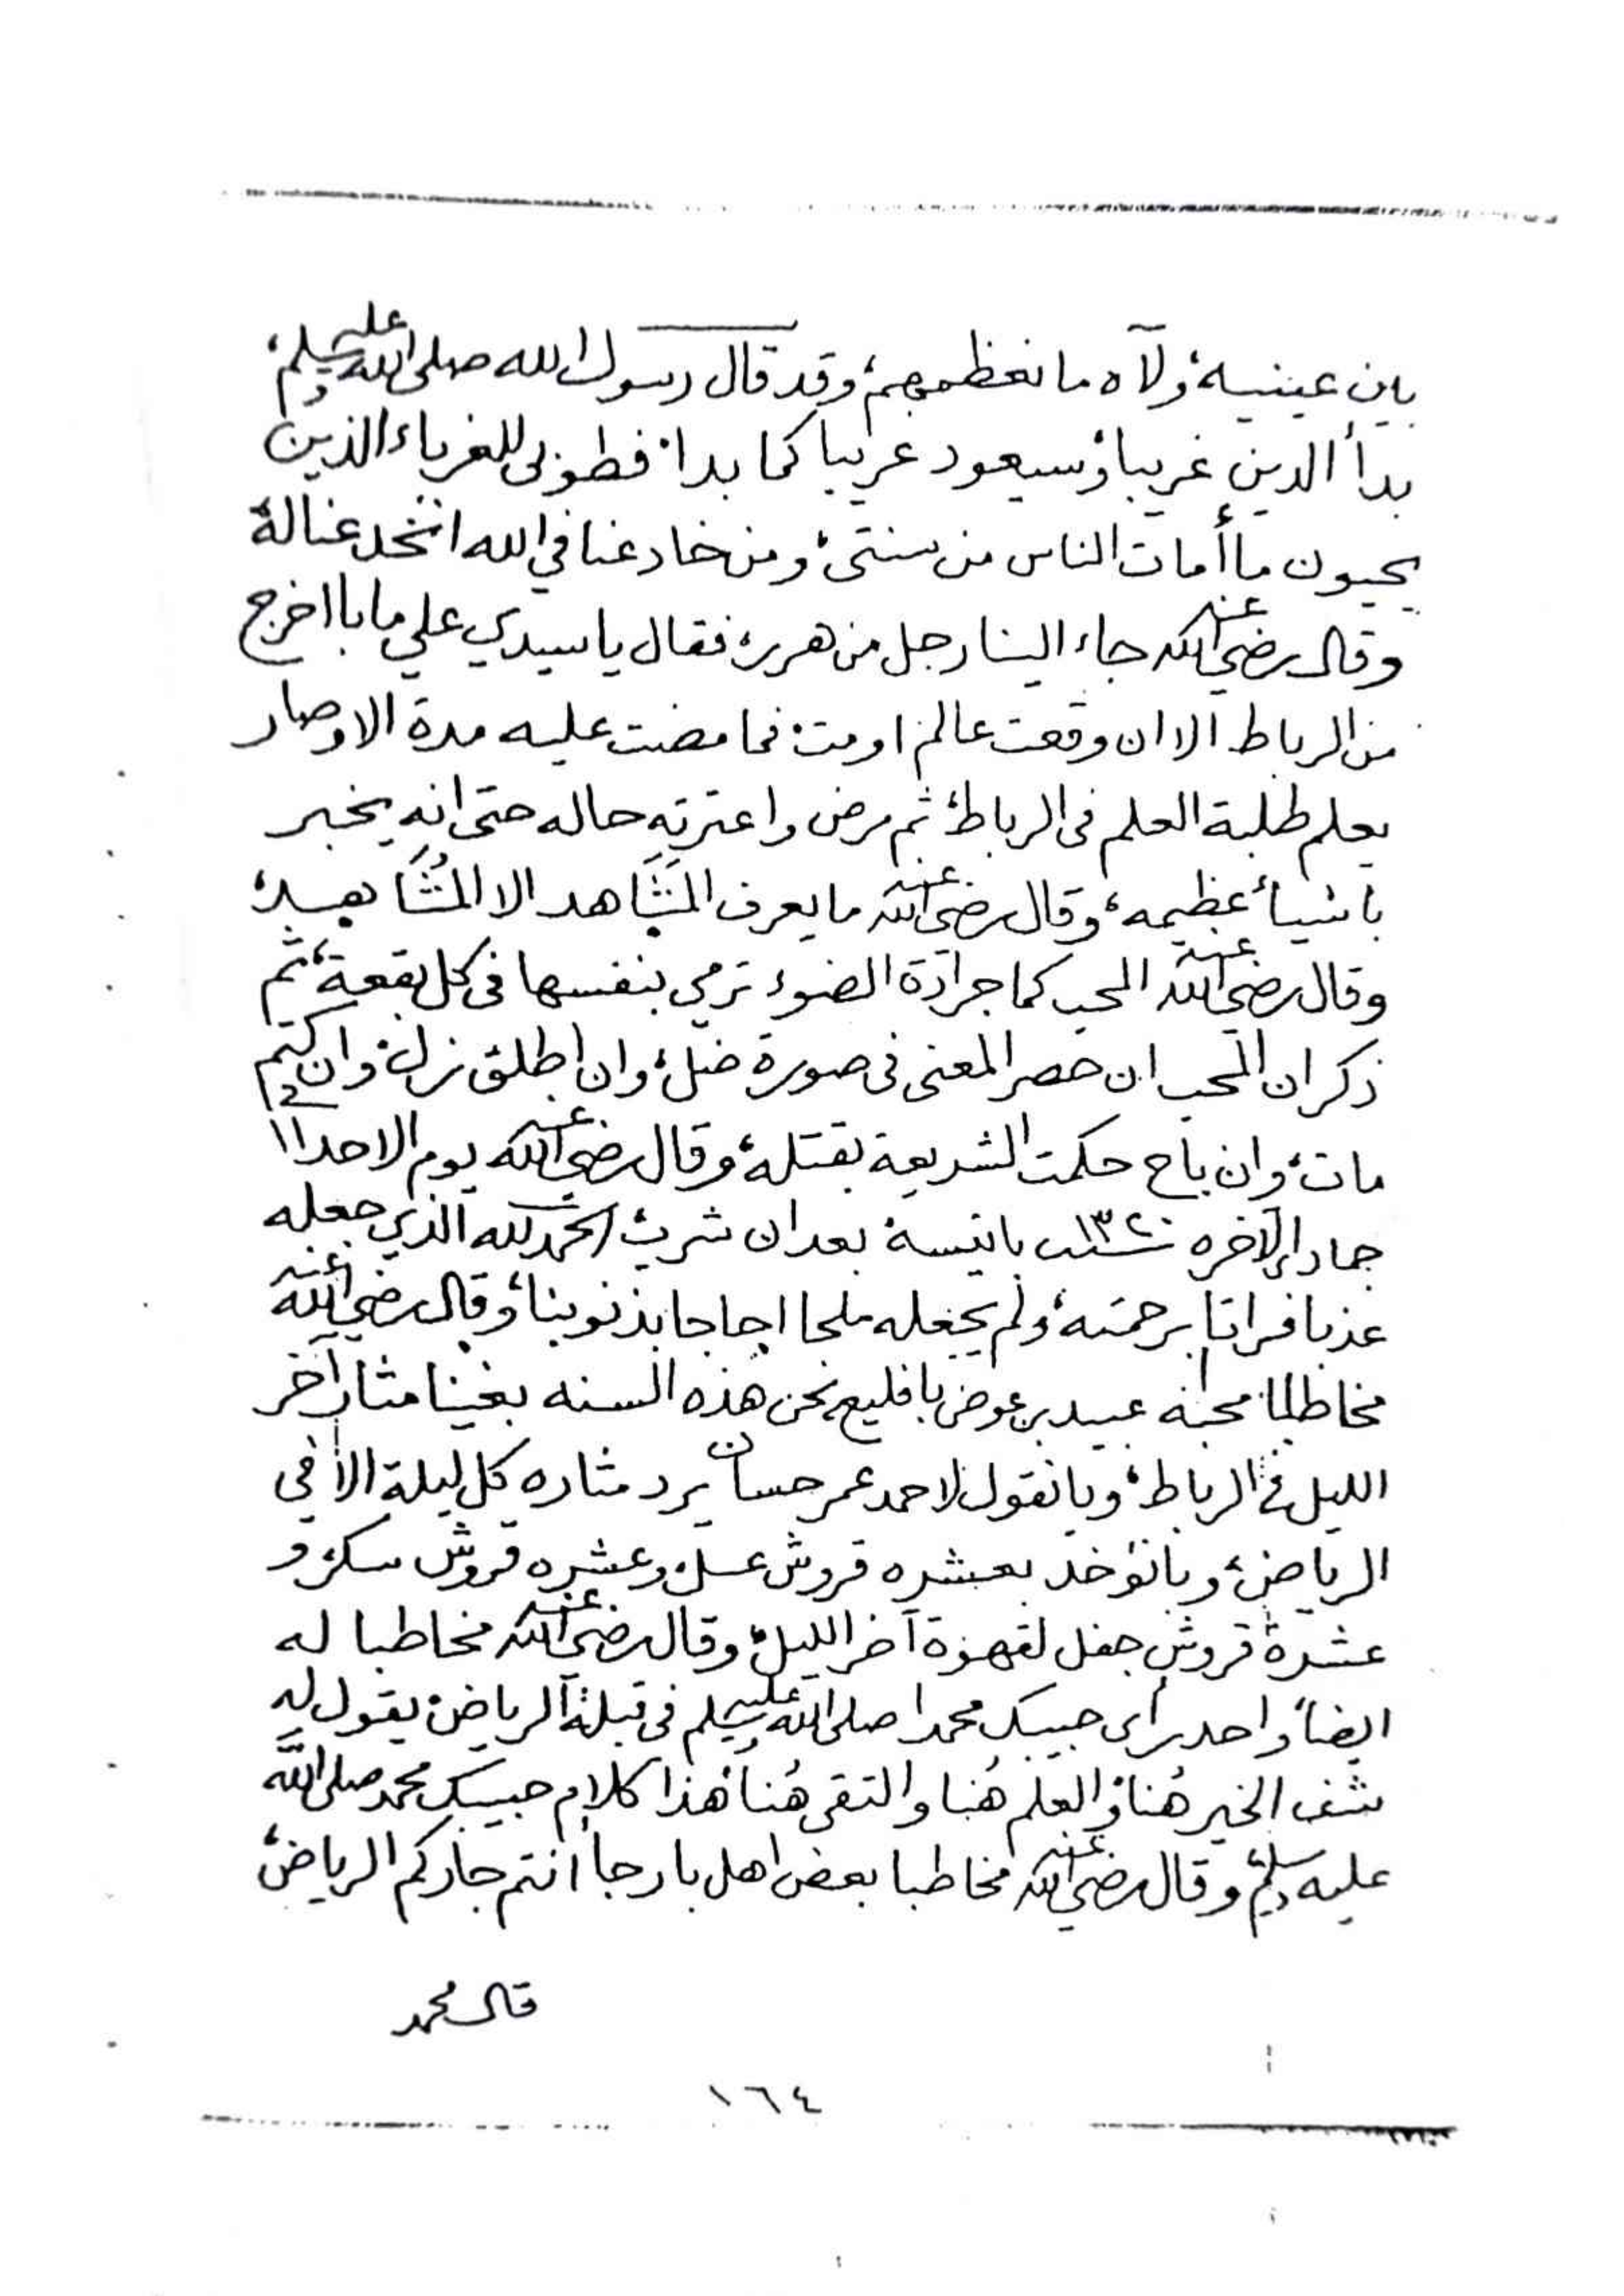 بين عينيه، ولآه ما نعظمهم، وقد قال رسول الله صلى الله عليه وسلم،
بدأ الدين غريبا، وسيعود غريبا كما بدا، فطوبى للغرباء الذين
يحيون ما أمات الناس من سنتي، ومن خادعنا في الله انخدعنا له،
وقال رضي الله عنه جاء الينا رجل من هرير، فقال يا سيدي علي ما با اخرج
من الرباط الا ان وقعت عالم او مت، فما مضت عليه مدة الا وصار
يعلم طلبة العلم في الرباط، ثم مرض واعترته حاله حتى انه يخبر
باشيأ عظيمه، وقال رضي الله عنه ما يعرف المَشَاهد الا المُشَاهِد،
وقال رضي الله عنه المحب كما جرادة الضوء ترمي بنفسها في كل بقعة، ثم
ذكر ان المحب ان حصر المعنى في صورة ضل، وان اطلق زل، وان كتم
مات، وان باح حكمت الشريعة بقتله، وقال رضي الله عنه يوم الاحد ١١
جماد الآخره سنة ١٣٢٠ بانيسة بعد ان شرب، الحمد لله الذي جعله
عذبا فراتا برحمته، ولم يجعله ملحا اجاجا بذنوبنا، وقال رضي الله عنه
مخاطبا محبه عبيد بن عوض بافليع نحن هذه السنه بغينا مثار آخر
الليل في الرباط، وبانقول لاحمد عمر حسان يرد مثاره كل ليلة الا في
الرياض، وبانؤخذ بعشره قروش عسل، وعشره قروش سكر، و
عشرة قروش جفل لقهوة آخر الليل، وقال رضي الله عنه مخاطبا له
ايضا، واحد رأى حبيبك محمدا صلى الله عليه وسلم في قبلة الرياض، يقول له
شف الخير هُنا، والعلم هُنا والتقى هُنا، هذا كلام حبيبك محمد صلى الله
عليه وسلم، وقال رضي الله عنه مخاطبا بعض اهل بارجا أنتم جاركم الرياض،
قال محمد
١٦٤